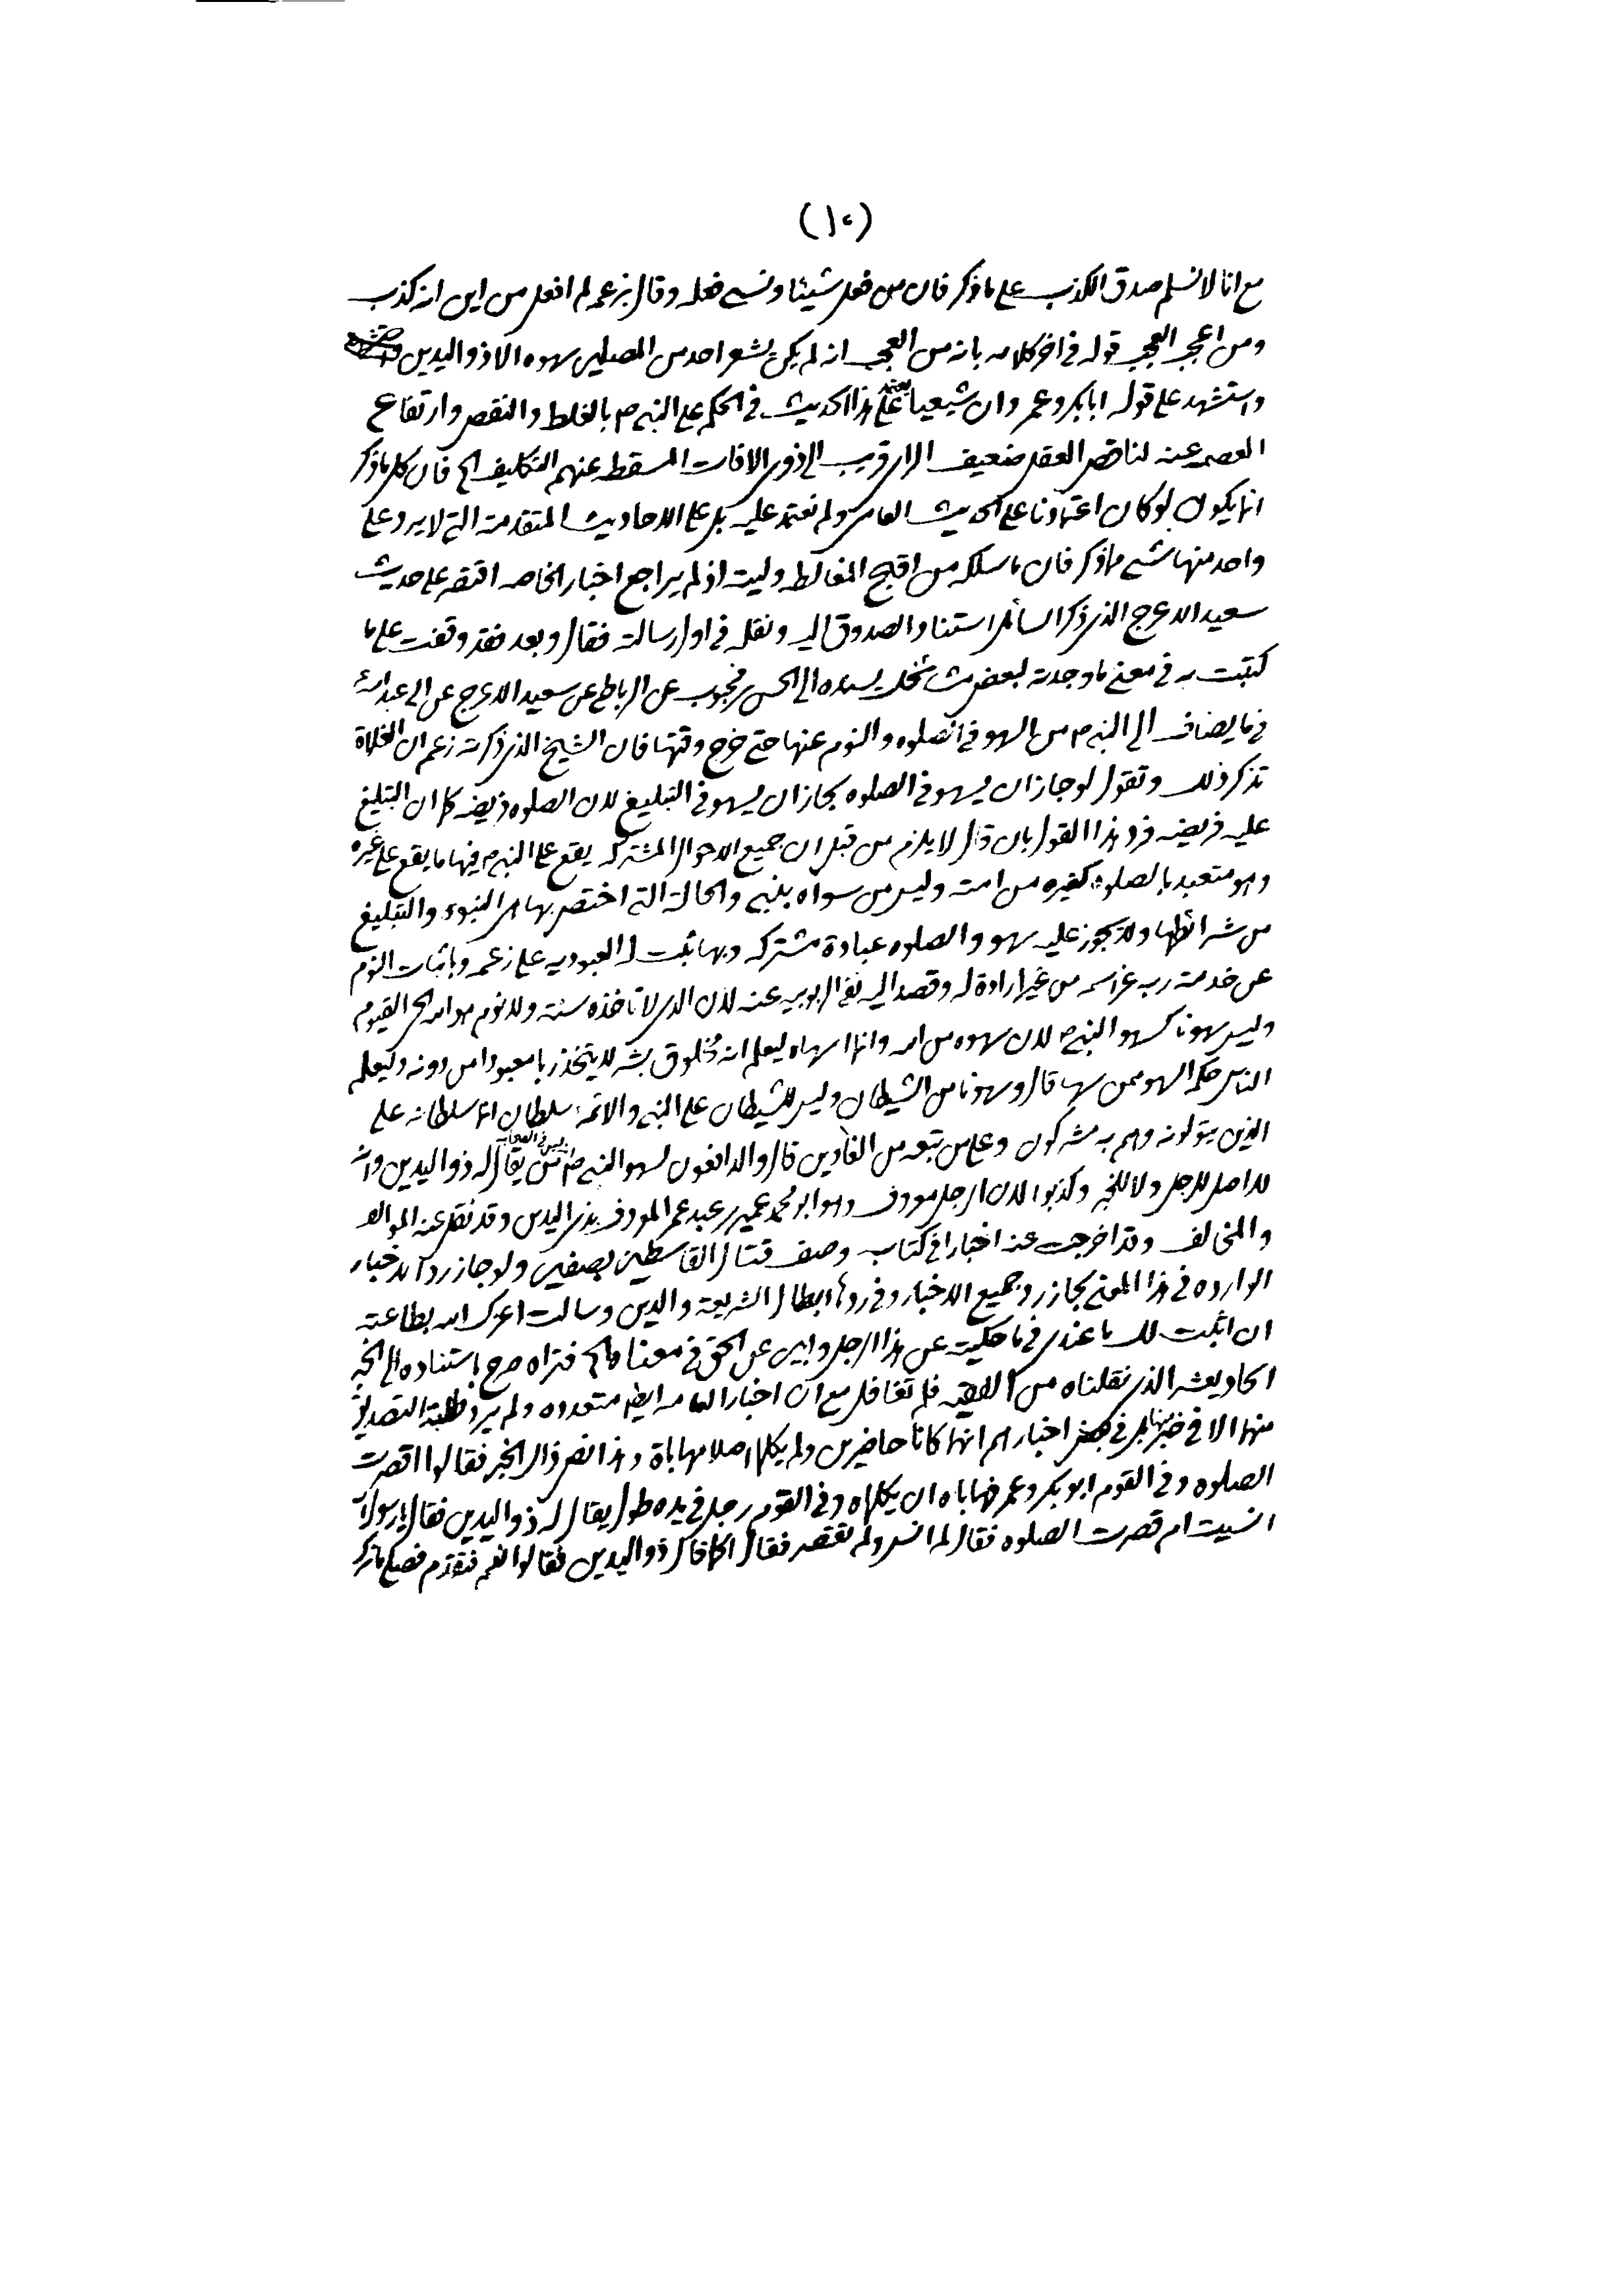 (١٠)
مع انا لا نسلم صدق الكذب على ما ذكر فان من فعل شيئا ونسى فعله وقال بزعمه لم افعل من اين انه كذب
ومن اعجب العجب قوله فى اخر كلامه بانه من العجب انه لم يكن يشعر احد من المصلين بسهوه الا ذو اليدين
واستشهد على قوله ابا بكر وعمر وان شيعيا يعتمد على هذا الحديث فى الحكم على النبى ص بالغلط والنقص وارتفاع
العصمه عنه لناقص العقل ضعيف الراى قريب الى ذوى الافات المسقطه عنهم التكليف الخ فان كل ما ذكر
انما يكون لو كان اعتمادنا على الحديث العامى ولم نعتمد عليه بل على الاحاديث المتقدمة التى لا يرد على
واحد منها شىء مما ذكر فان ما سلكه من اقبح المغالطه وليت اذ لم يراجع اخبار الخاصه اقتصر على حديث
سعيد الاعرج الذى ذكر السائل استناد الصدوق اليه ونقله فى اول رسالته فقال وبعد فقد وقفت على ما
كتبت به فى معنى ما وجدته لبعض مشائخك يسنده الى الحسن بن محبوب عن الرباطى عن سعيد الاعرج عن ابى عبد الله
فى ما يضاف الى النبى ص من السهو فى الصلوه والنوم عنها حتى خرج وقتها فان الشيخ الذى ذكرته زعم ان الغلاة
تذكر ذلك وتقول لو جاز ان يسهو فى الصلوه لجاز ان يسهو فى التبليغ لان الصلوه فريضه كما ان التبليغ
عليه فريضه فرد هذا القول بان قال لا يلزم من قبل ان جميع الاحوال المشتركه يقع على النبى ص فيها ما يقع على غيره
وهو متعبد بالصلوه كغيره من امته وليس من سواه بنبى والحالة التى اختص بها هى النبوه والتبليغ
من شرائطها ولا يجوز عليه سهو والصلوه عبادة مشتركه وبها ثبت له العبوديه على زعمه وباثبات النوم
عن خدمة ربه عز اسمه من غير ارادة له وقصد اليه نفى الربوبيه عنه لان الذى لا تاخذه سنة ولا نوم هو الله الحى القيوم
وليس سهونا كسهو النبى ص لان سهوه من الله وانما اسهاه ليعلم انه مخلوق بشر لا يتخذ ربا معبودا من دونه وليعلم
الناس حكم السهو ممن سها قال وسهونا من الشيطان وليس للشيطان على النبى والائمة سلطان انما سلطانه على
الذين يتولونه وهم به مشركون وعلى من تبعه من الغاوين قال والدافعون لسهو النبى ص ليس فى الصحابه من يقال له ذو اليدين وانه
لا اصل للرجل ولا للخبر وكذبوا لان الرجل معروف وهو ابو محمد عمير بن عبد عمر المعروف بذى اليدين وقد نقل عنه الموالف
والمخالف وقد اخرجت عنه اخبارا فى كتاب وصف قتال القاسطين بصفين ولو جاز رد الاخبار
الوارده فى هذا المعنى لجاز رد جميع الاخبار وفى ردها ابطال الشريعة والدين وسالت اعزك الله بطاعته
ان اثبت لك ما عندى فى ما حكيته عن هذا الرجل وابين عن الحق فى معناه الخ فتراه صرح استناده الى الخبر
الحاديعشر الذى نقلناه من الفقيه فلم تغافل مع ان اخبار العامه ايضا متعدده ولم يرد التصديق
منهما الا فى خبر منها بل فى بعض اخبارهم انهما كانا حاضرين ولم يكلما اصلا مهاباة وهذا نص ذلك الخبر فقالوا اقصرت
الصلوه وفى القوم ابو بكر وعمر فهاباه ان يكلماه وفى القوم رجل فى يده طول يقال له ذو اليدين فقال يا رسول الله
انسيت ام قصرت الصلوه فقال لم انس ولم تقصر فقال اكما قال ذو اليدين فقالوا نعم فتقدم فصلى ما ترك